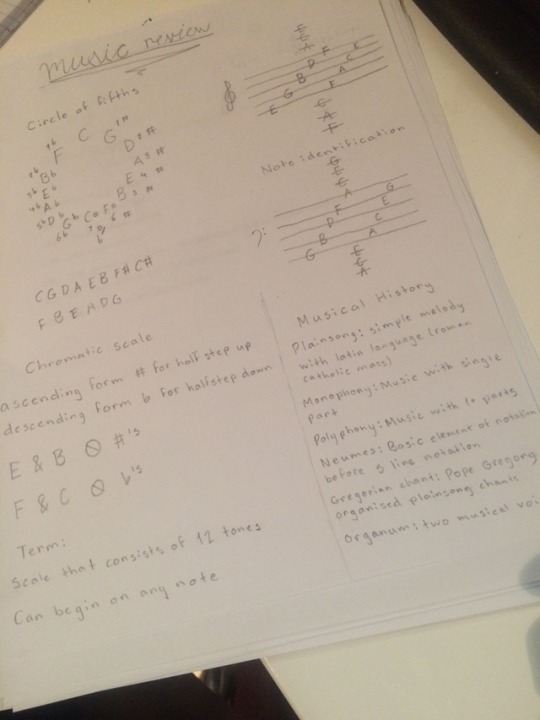 music review
Circle of fifths
C
F G
Bb D
Eb A
Ab E
Db B
Gb
C G D A E B F# C#
F B E A D G
Chromatic scale
ascending form # for half step up
descending form b for halfstep down
E & B #'s
F & C b's
Term:
Scale that consists of 12 tones
Can begin on any note
E G B D F
F A C E
Note identification
G B D F A
A C E G
Musical History
Plainsong: simple melody
with latin language (roman
catholic mass)
Monophony: Music with single
part
Polyphony: Music with 1+ parts
Neumes: Basic element of notation
before 5 line notation
Gregorian chant: Pope Gregory
organised plainsong chants
Organum: two musical voi